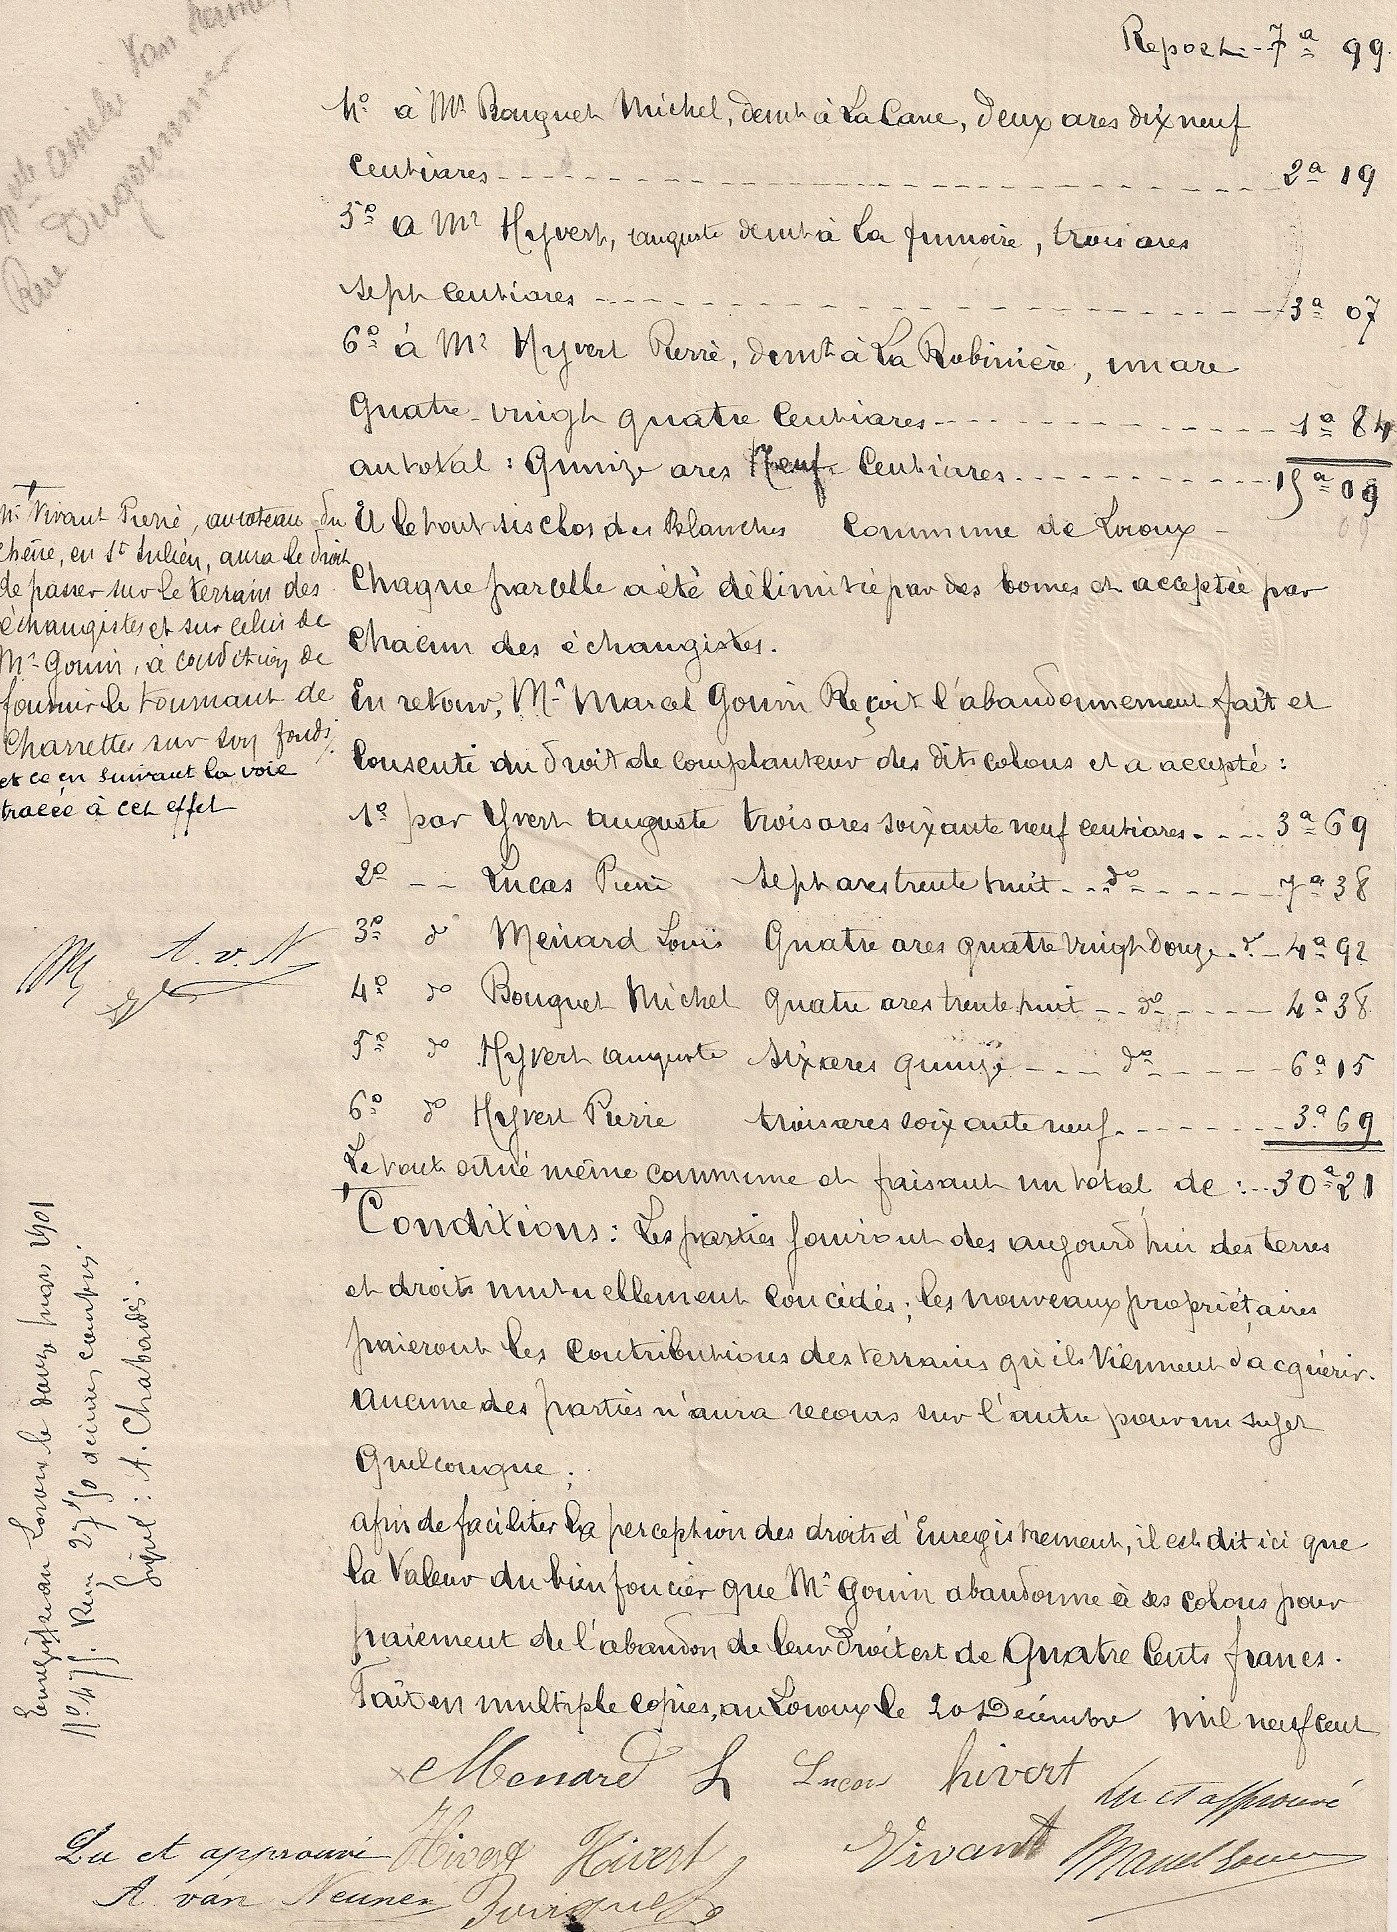 Report - 7ª 99.
4º à Mr Bouquet Michel, demt à La Cave, deux ares dix neuf
Centiares - - - 2ª 19
5º à Mr Hyvert, auguste demt à la fumoire, trois ares
sept Centiares - - - 3ª 07
6º à Mr Hyvert Pierre, demt à La Robinière, un are
quatre-vingt quatre Centiares - - - 1ª 84
au total : Quinze ares Neuf Centiares - - - 15ª 09
Et le tout sis clos des Blanches Commune de Loroux -
Chaque parcelle a été délimitée par des bornes et acceptée par
Chacun des échangistes.
En retour, Mr Marcel Gouin Reçoit l'abandonnement fait et
Consenti du droit de complanteur des dits colons et a accepté :
1º par Yvert auguste trois ares soixante neuf centiares - - - 3ª 69
2º - - Lucas Pierre sept ares trente huit - - dº - - - 7ª 38
3º dº Menard Louis Quatre ares quatre vingt douze - dº - 4ª 92
4º dº Bouquet Michel quatre ares trente huit - - dº - - - 4ª 38
5º dº Hyvert auguste six ares quinze - - - dº - - - 6ª 15
6º dº Hyvert Pierre trois ares soixante neuf - - - 3ª 69
Le tout situé même commune et faisant un total de : - - 30ª 21
Conditions : Les parties jouiront des aujourd'hui des terres
et droits mutuellement concédés ; les nouveaux propriétaires
paieront les contributions des terrains qu'ils viennent d'acquérir.
Aucune des parties n'aura recours sur l'autre pour un sujet
Quelconque ;
afin de faciliter la perception des droits d'Enregistrement, il est dit ici que
la valeur du bien foncier que Mr Gouin abandonne à ses colons pour
paiement de l'abandon de leur droit est de Quatre Cents francs.
Fait en multiple copies, au Loroux le 20 Décembre mil neuf cent
Menard L Lucas hivert Lu et approuvé
Hivert Hivert Vivant Marcel Gouin
Lu et approuvé
A. van Neunen Bouquet
Mr Vivant Pierre, au coteau du
Chêne, en St Julien, aura le droit
de passer sur le terrain des
échangistes et sur celui de
Mr Gouin, à condition de
fournir le tournant de
Charrettes sur son fonds
et ce en suivant la voie
tracée à cet effet
A. v. N
Enregistré au Loroux le douze mars 1901
Nº 475. Reçu 27 50 décimes compris.
Signé : A. Chabardès.
Rue Dugommier